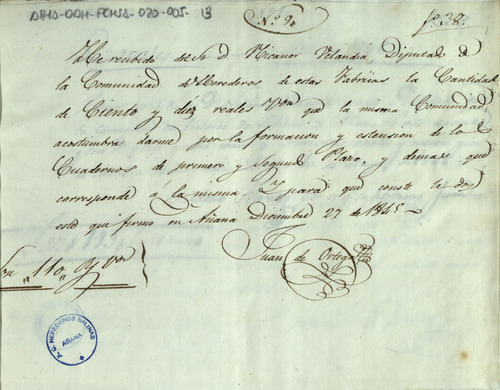 ATHA-DAH-FCHSA-020-005-13
N.º 9.
fº. 38.
He recibido del Sr. D. Nicanor Velandia, Diputad. de
la Comunidad de Herederos de estas Fabricas la Cantidad
de Ciento y diez reales Von que la misma Comunidad
acostumbra darme por la formacion y estension de los
Cuadernos de primero y Segund Plazo, y demas que
corresponde á la misma Y para que conste le doy
este que firmo en Añana Diciembre 27 de 1845-
Juan de Ortega
Son "110,, Rs von
T.C. HEREDEROS SALINAS
AÑANA